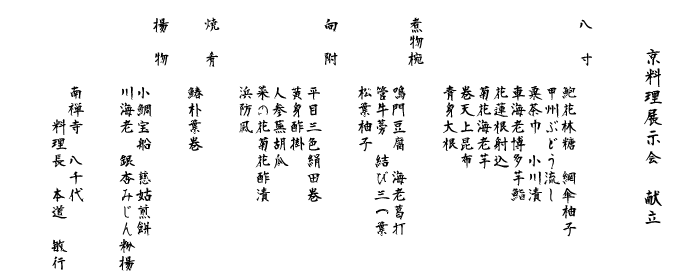 京料理展示会 献立
八寸
鮑花林糖 綱傘柚子
甲州ぶどう流し
粟茶巾 小川漬
車海老博多羊鮨
花蓮根射込
菊花海老芋
巻天上昆布
青身大根
煮物椀
鳴門豆腐 海老葛打
管牛蒡 結び三つ葉
松葉柚子
向附
平目三色絹田巻
黄身酢掛
人参黒胡瓜
菜の花菊花酢漬
浜防風
焼肴
鰆朴葉巻
揚物
小鯛宝船 慈姑煎餅
川海老 銀杏みじん粉揚
南禅寺 八千代
料理長 本道 敏行